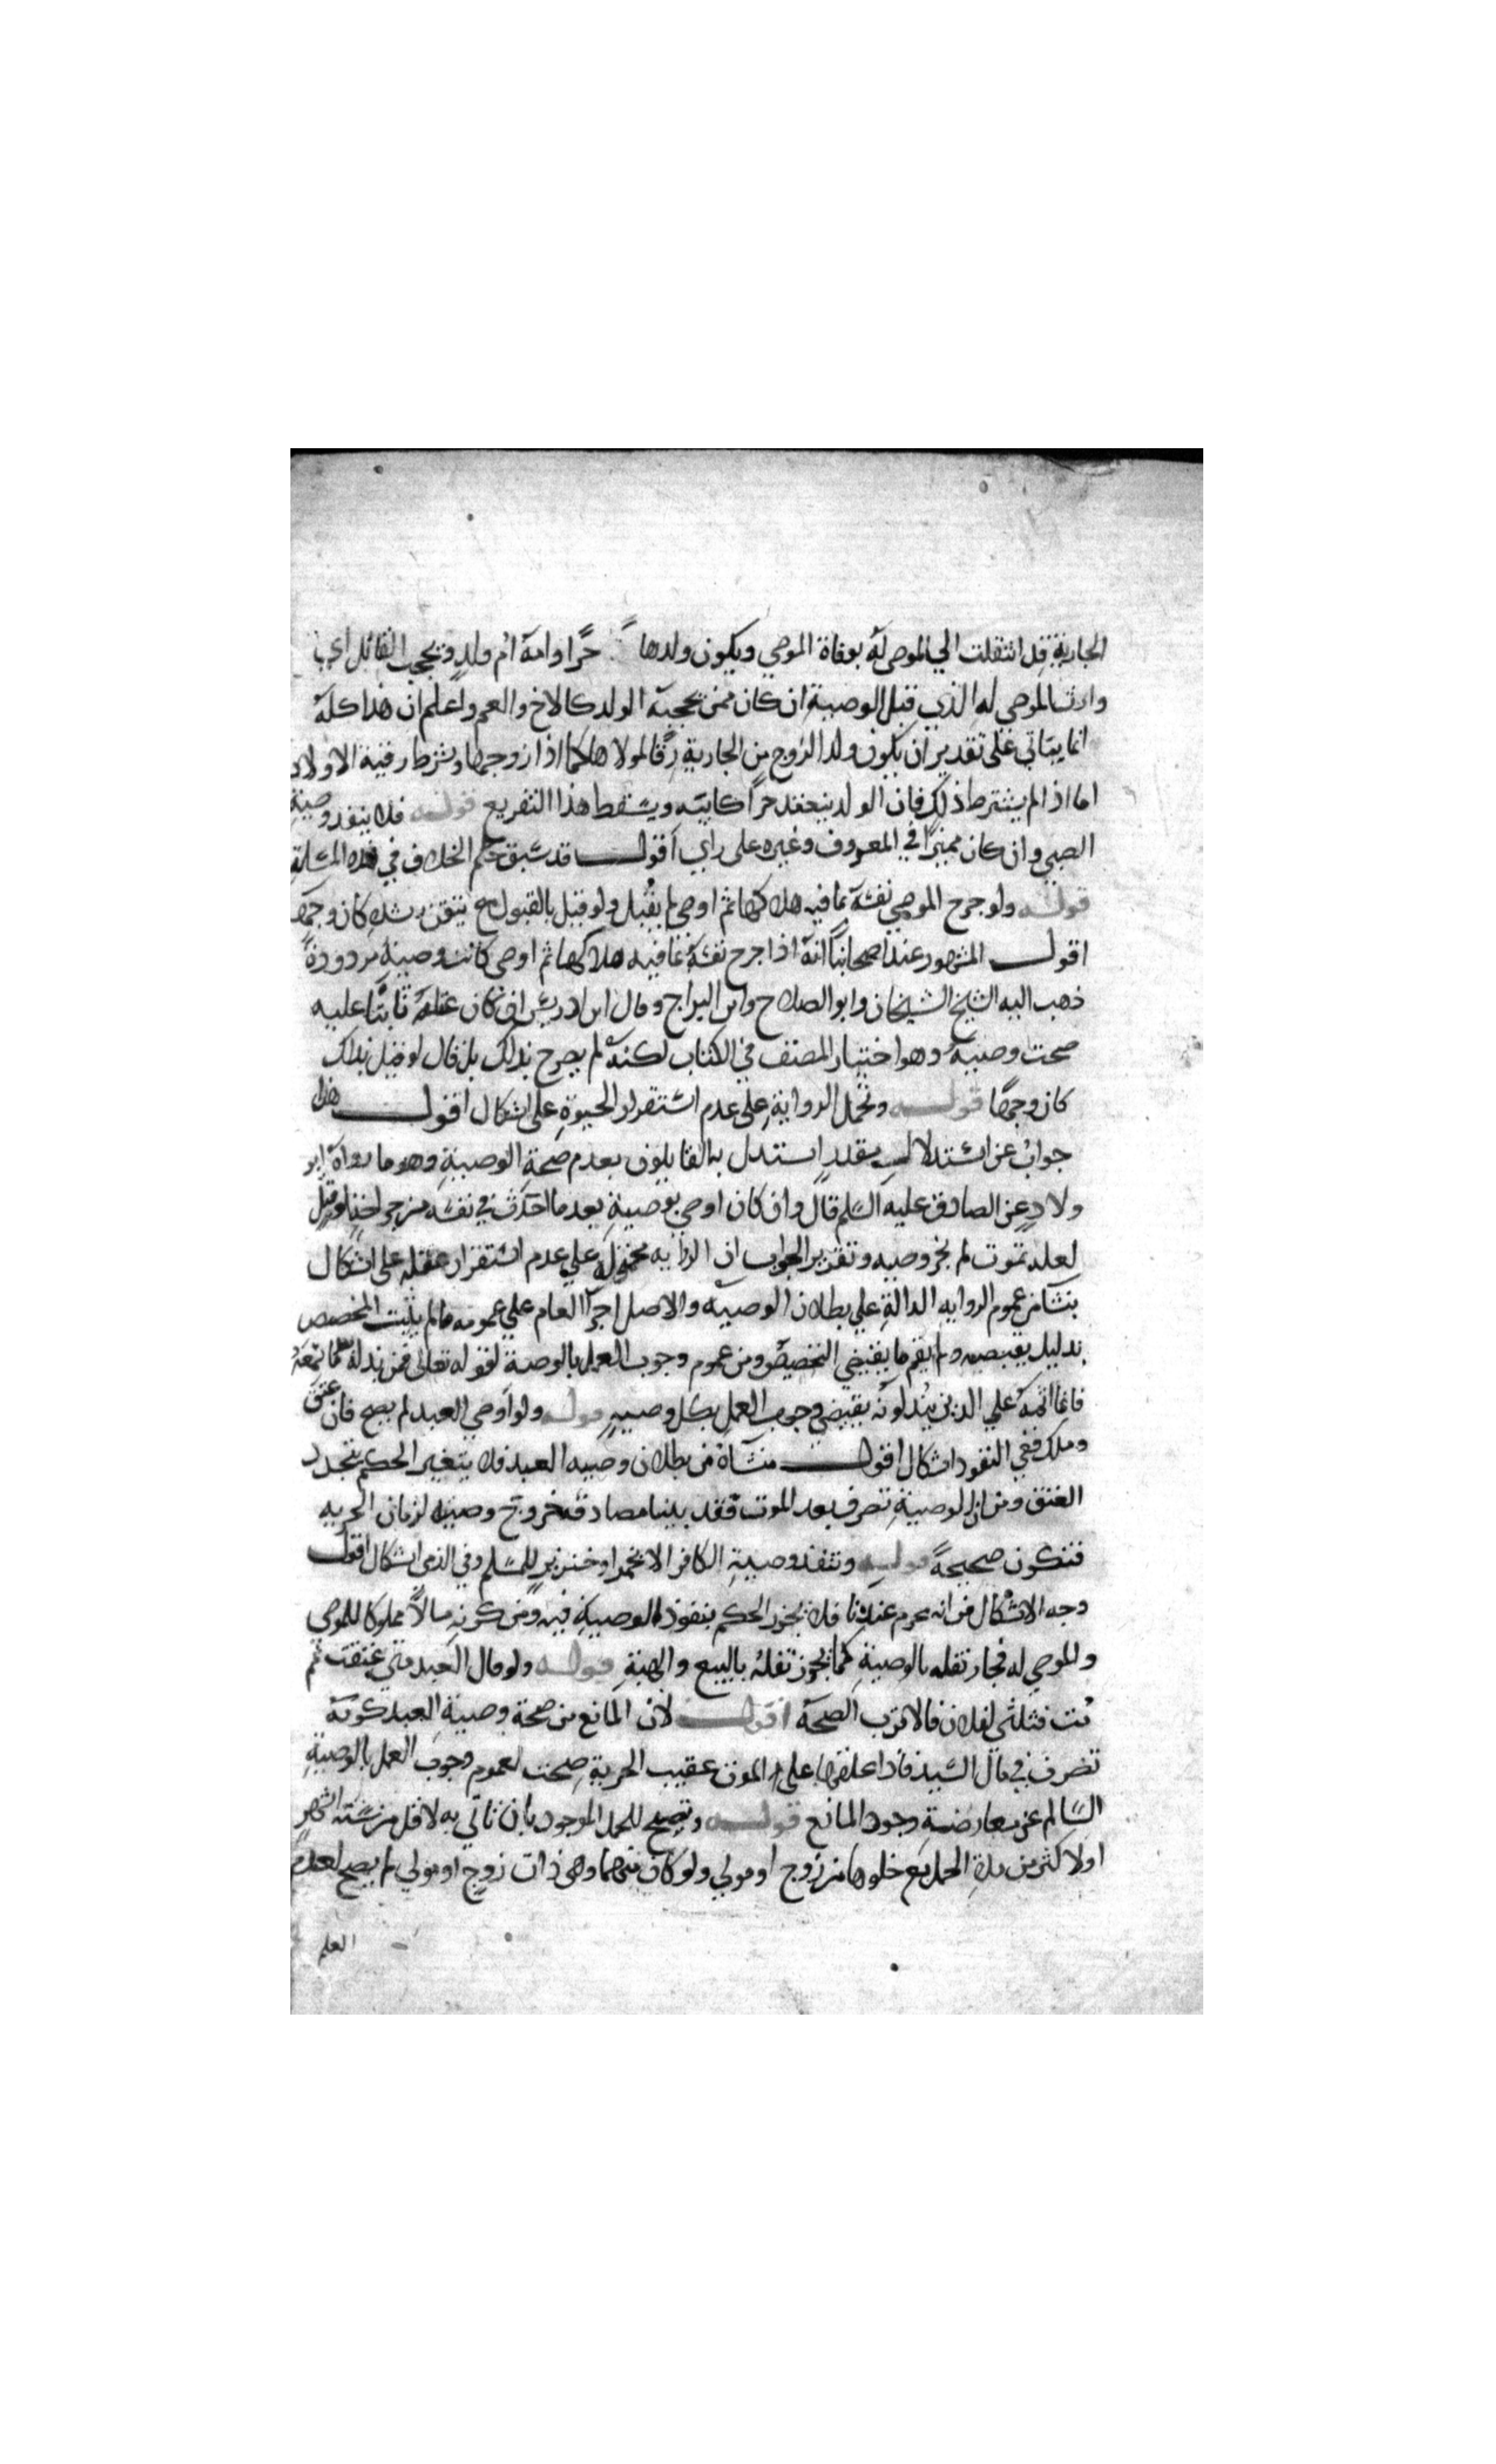 الجارية قد انتقلت الي الموصى له بوفاة الموصي ويكون ولدها حرا وامه ام ولد ويحجب القائل اي
وارث الموصي له الذي قبل الوصية ان كان ممن يحجبه الولد كالاخ والعم واعلم ان هذا كله
انما يتاتي علي تقدير ان يكون ولد الزوج من الجارية رقا لمولاها كما اذا زوجها وشرط رقية الاولاد
اما اذا لم يشترط ذلك فان الولد ينعقد حرا كابيه ويسقط هذا التفريع قوله فلا ينفذ وصية
الصبي وان كان مميزا في المعروف وغيره علي راي اقول قد سبق حكم الخلاف في هذه المسلة
قوله ولو جرح الموصي نفسه بما فيه هلاكها ثم اوصي لم يقبل ولو قيل بالقبول مع تيقن رشده كان وجها
اقول المشهور عند اصحابنا انه اذا جرح نفسه بما فيه هلاكها ثم اوصي كانت وصيته مردودة
ذهب اليه الشيخ الشيخان وابو الصلاح وابن البراج وقال ابن ادريس ان كان عقله ثابتا عليه
صحت وصيته وهو اختيار المصنف في الكتاب لكنه لم يصرح بذلك بل قال لو قيل بذلك
كان وجها قوله وتحمل الرواية علي عدم استقرار الحيوة علي اشكال اقول هذا
جواب عن استدلال مقدر استدل به القايلون بعدم صحة الوصية وهو ما رواه ابو
ولاد عن الصادق عليه السلم قال وان كان اوصي بوصية بعد ما احدث في نفسه من جراحة او قتل
لعله يموت لم يجز وصيه وتقرير الجواب ان الرواية محمولة علي عدم استقرار عقله علي اشكال
ينشا من عموم الرواية الدالة علي بطلان الوصية والاصل اجرا العام علي عمومه ما لم يثبت المخصص
بدليل يقتضيه ولم يقم ما يقتضي التخصيص ومن عموم وجوب العمل بالوصية لقوله تعالى فمن بدله بعد ما سمعه
فانما اثمه علي الذين يبدلونه يقتضي وجوب العمل بكل وصية قوله ولو اوصي العبد لم يصح فان عتق
وملك ففي النفوذ اشكال اقول منشاه من بطلان وصيه العبد فلا يتغير الحكم بتجدد
العتق ومن ان الوصية تصرف بعد الموت فقد بينا مصادقة خروج وصيته لزمان الحريه
فتكون صحيحة قوله وتنفذ وصية الكافر الا بخمر او خنزير للمسلم وفي الذمي اشكال اقول
وجه الاشكال من انه محرم عندنا فلا يجوز الحكم بنفوذ الوصية فيه ومن كونه مالا مملوكا للموصي
والموصي له فجاز نقله بالوصية كما يجوز نقله بالبيع والهبة قوله ولو قال العبد متي عتقت ثم
مت فثلثي لفلان فالاقرب الصحة اقول لان المانع من صحة وصية العبد كونه
تصرف في مال السيد فاذا علقها علي الموت عقيب الحرية صحت لعموم وجوب العمل بالوصية
السالم عن معارضة وجود المانع قوله وتصح للحمل الموجود بان تاتي به لاقل من ستة اشهر
او لاكثر من مدة الحمل مع خلوها من زوج او مولي ولو كان بينهما وهي ذات زوج او مولي لم يصح لعدم
العلم